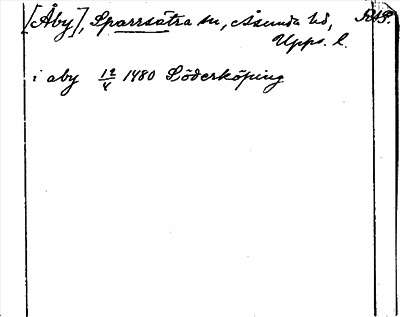 [Åby], Sparrsätra sn, Åsunda hd,
Upps. l.
i aby 12/4 1480 Söderköping